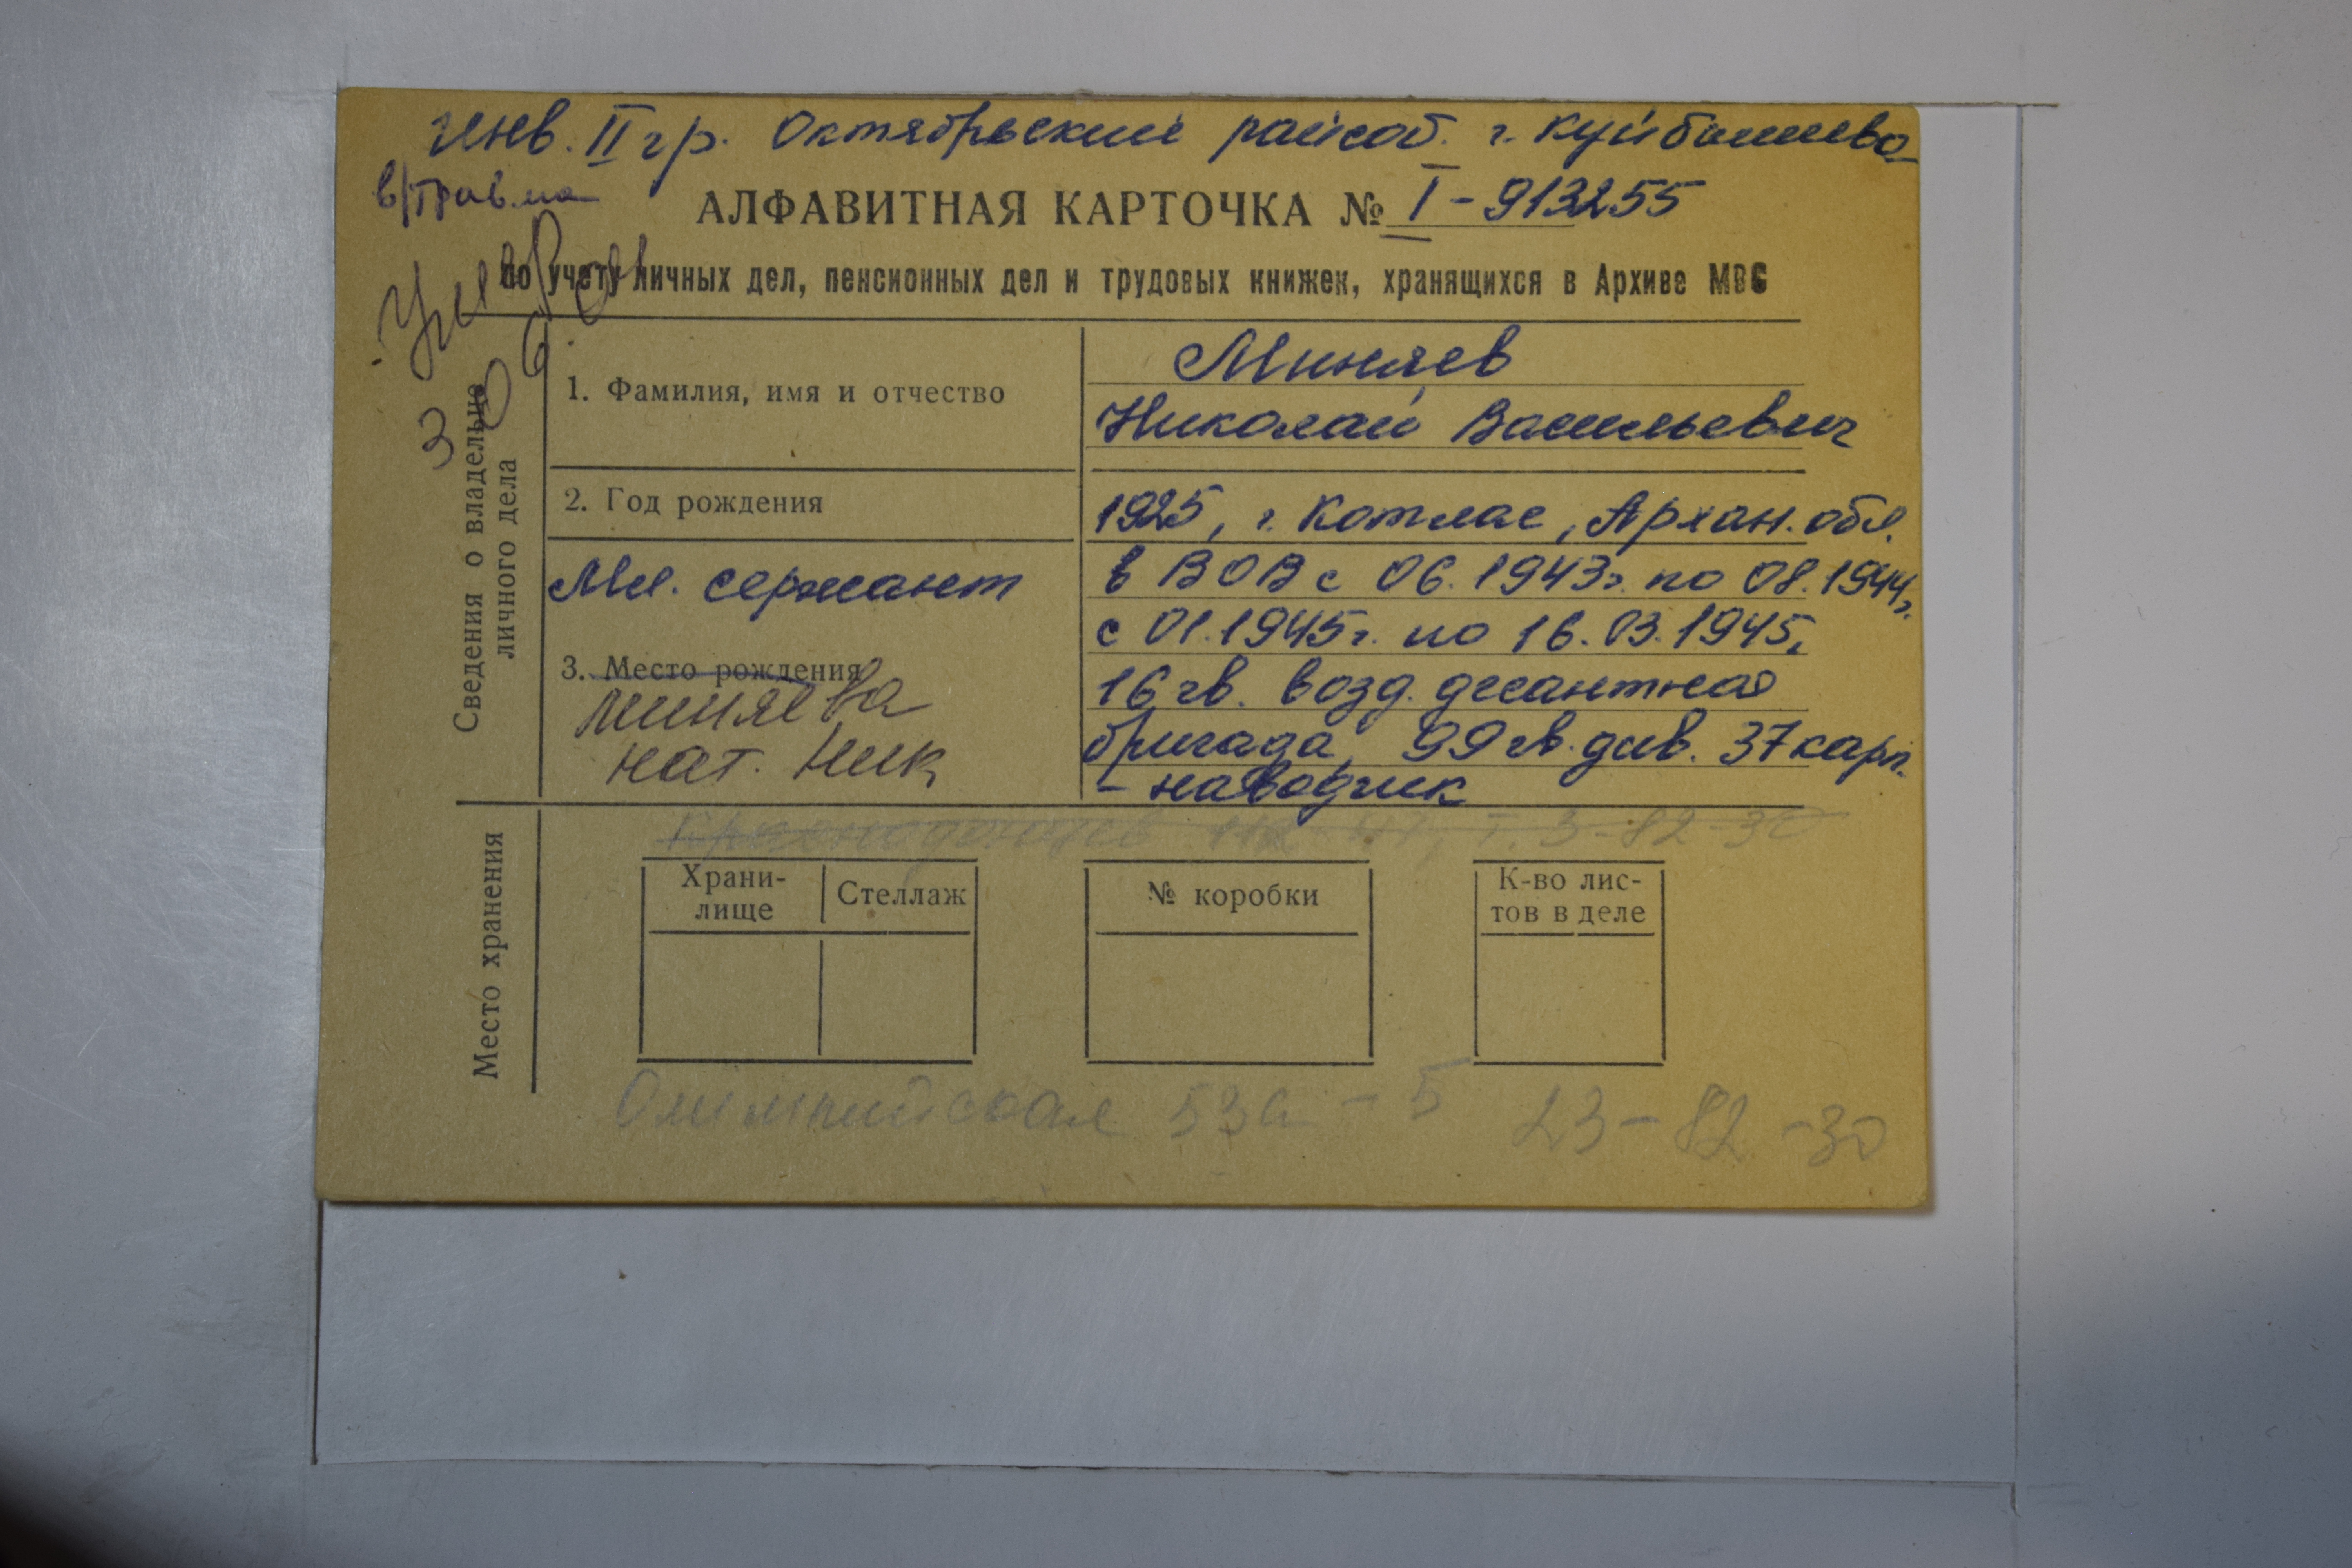 Инв. II гр. Октябрьский райсоб. г. Куйбышева
в/травма
АЛФАВИТНАЯ КАРТОЧКА № I-913255
по учету личных дел, пенсионных дел и трудовых книжек, хранящихся в Архиве МВС
Умер
Сведения о владельце
личного дела
1. Фамилия, имя и отчество
Миняев
Николай Васильевич
2. Год рождения
1925, г. Котлас, Архан. обл.
Мл. сержант
в ВОВ с 06.1943г. по 08.1944г.
с 01.1945г. по 16.03.1945г.
3. Место рождения
16 гв. возд. десантная
Миняева
бригада, 99 гв. див. 37 карп.
Нат. Ник
- наводчик
Место хранения
Т. 3-82-30
Храни-
лище
Стеллаж
№ коробки
К-во лис-
тов в деле
Олимпийская 53а - 5 23-82-30